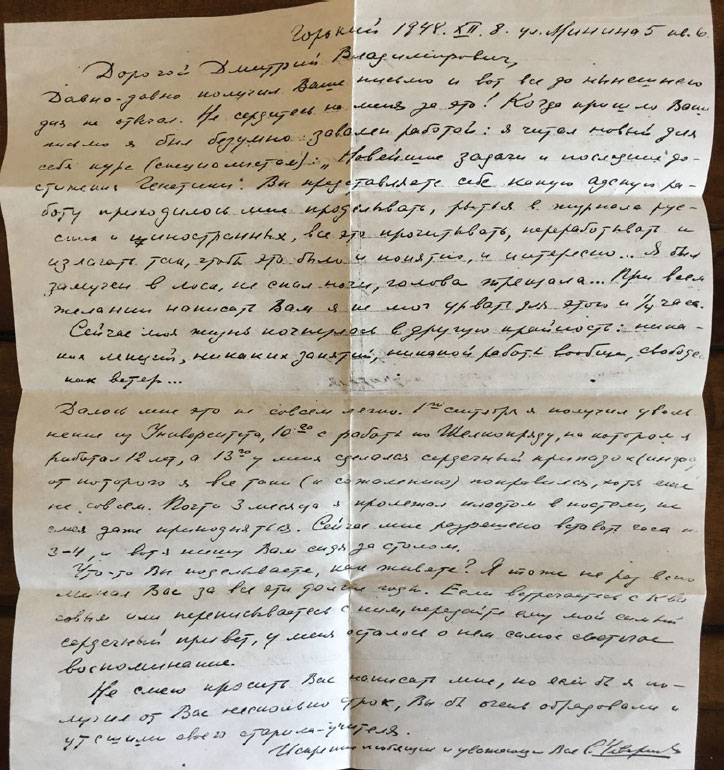 Горький 1948. XII. 8. ул. Минина 5 кв. 6
Дорогой Дмитрий Владимирович,
Давно-давно получил Ваше письмо и вот все до нынешнего
дня не отвечал. Не сердитесь на меня за это! Когда пришло Ваше
письмо я был безумно завален работой: я читал новый для
себя курс (специалистам): "Новейшие задачи и последние до-
стижения Генетики". Вы представляете себе какую адскую ра-
боту приходилось мне проделывать, рыться в журналах рус-
ских и иностранных, все это прочитывать, перерабатывать и
излагать так, чтобы это было и понятно, и интересно... Я был
замучен в лоск, не спал ночи, голова трещала... При всем
желании написать Вам я не мог урвать для этого и 1/4 часа.
Сейчас моя жизнь качнулась в другую крайность: ника-
ких лекций, никаких занятий, никакой работы вообще, свободен
как ветер...
Далось мне это не совсем легко. 1го сентября я получил уволь
нение из Университета, 10го с работы по Шелкопряду, на котором я
работал 12 лет, а 13го у меня сделался сердечный припадок
от которого я все таки (к сожалению) поправился, хотя еще
не совсем. Почти 3 месяца я пролежал пластом в постели, не
смея даже приподняться. Сейчас мне разрешено вставать часа на
3-4, и вот я пишу Вам сидя за столом.
Что-то Вы поделываете, как живете? Я тоже не раз вспо
минал Вас за все эти долгие годы. Если встречаетесь с
или переписываетесь с ним, передайте ему мой самый
сердечный привет, у меня осталось о нем самое светлое
воспоминание.
Не смею просить Вас написать мне, но если бы я по-
лучил от Вас несколько строк, Вы бы очень обрадовали и
утешили своего старика-учителя.
Искренне любящий и уважающий Вас С. Четвериков